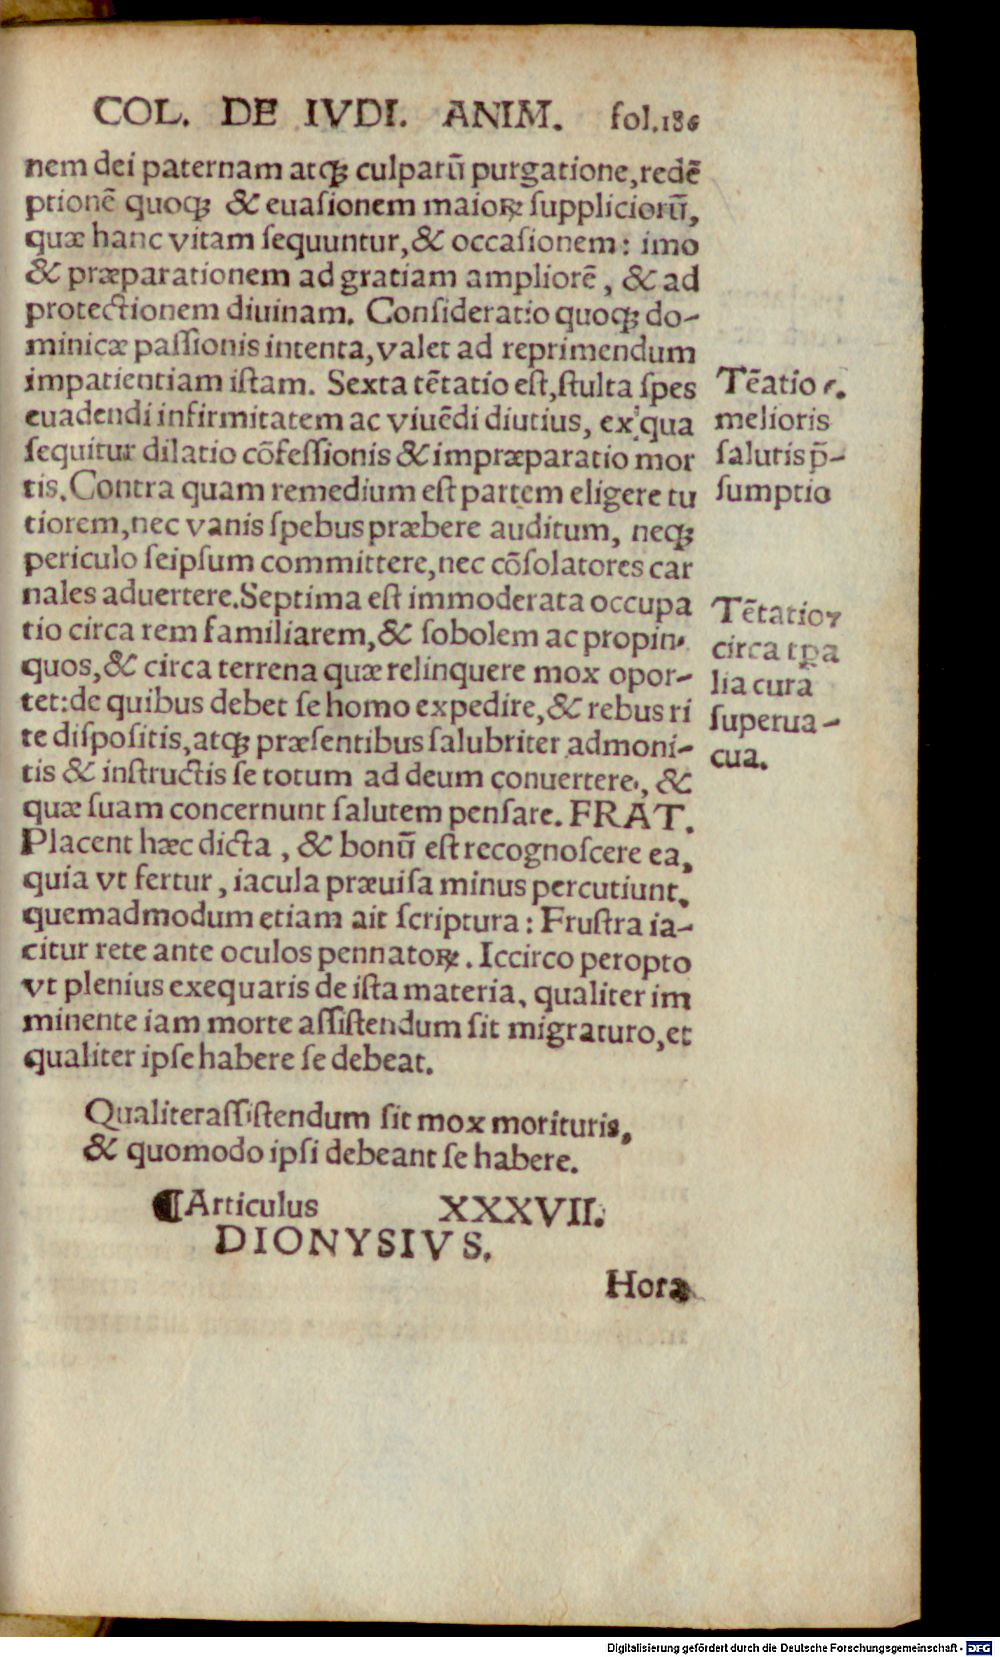 COL. DE IVDI. ANIM. fol.186
nem dei paternam atqꝫ culparū purgatione,redē
ptionē quoqꝫ & euasionem maioꝝ suppliciorū,
quæ hanc vitam sequuntur,& occasionem: imo
& præparationem ad gratiam ampliorē, & ad
protectionem diuinam. Consideratio quoqꝫ do-
minicæ passionis intenta,valet ad reprimendum
impatientiam istam. Sexta tētatio est,stulta spes
euadendi infirmitatem ac viuēdi diutius, ex qua
sequitur dilatio cōfessionis & impræparatio mor
tis.Contra quam remedium est partem eligere tu
tiorem,nec vanis spebus præbere auditum, neqꝫ
periculo seipsum committere,nec cōsolatores car
nales aduertere.Septima est immoderata occupa
tio circa rem familiarem,& sobolem ac propin-
quos,& circa terrena quæ relinquere mox opor-
tet:de quibus debet se homo expedire,& rebus ri
te dispositis,atqꝫ præsentibus salubriter admoni-
tis & instructis se totum ad deum conuertere, &
quæ suam concernunt salutem pensare. FRAT.
Placent hæc dicta, & bonū est recognoscere ea,
quia vt fertur, iacula præuisa minus percutiunt,
quemadmodum etiam ait scriptura: Frustra ia-
citur rete ante oculos pennatoꝝ. Iccirco peropto
vt plenius exequaris de ista materia, qualiter im
minente iam morte assistendum sit migraturo,et
qualiter ipse habere se debeat.
Tēatio 6.
melioris
salutis p̄-
sumptio
Tētatio 7
circa tꝑa
lia cura
superua-
cua.
Qualiter assistendum sit mox morituris,
& quomodo ipsi debeant se habere.
¶Articulus XXXVII.
DIONYSIVS.
Hora
Digitalisierung gefördert durch die Deutsche Forschungsgemeinschaft - DFG